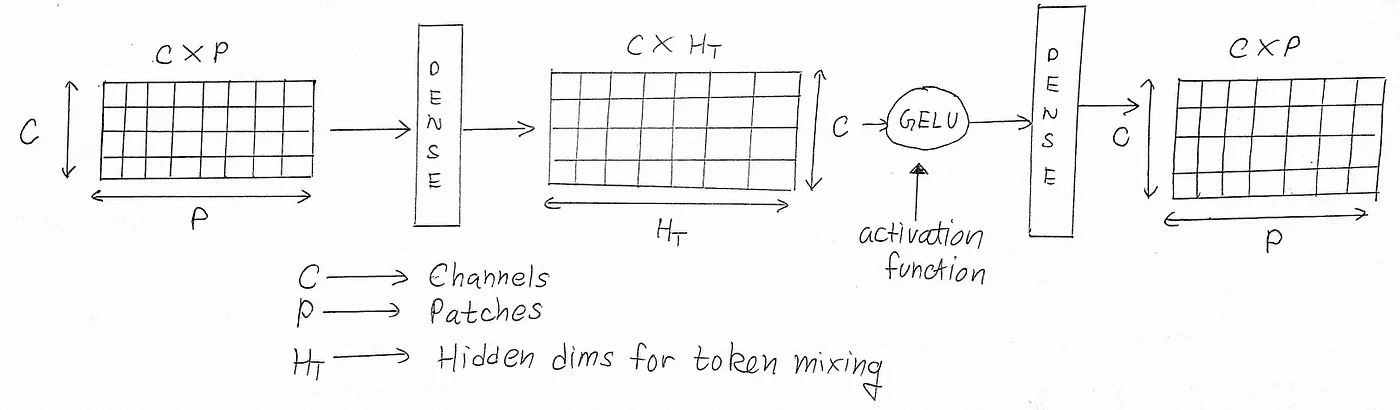 C X P
C
P
DENSE
C X H_T
C
H_T
GELU
activation
function
DENSE
C X P
C
P
C → Channels
P → Patches
H_T → Hidden dims for token mixing